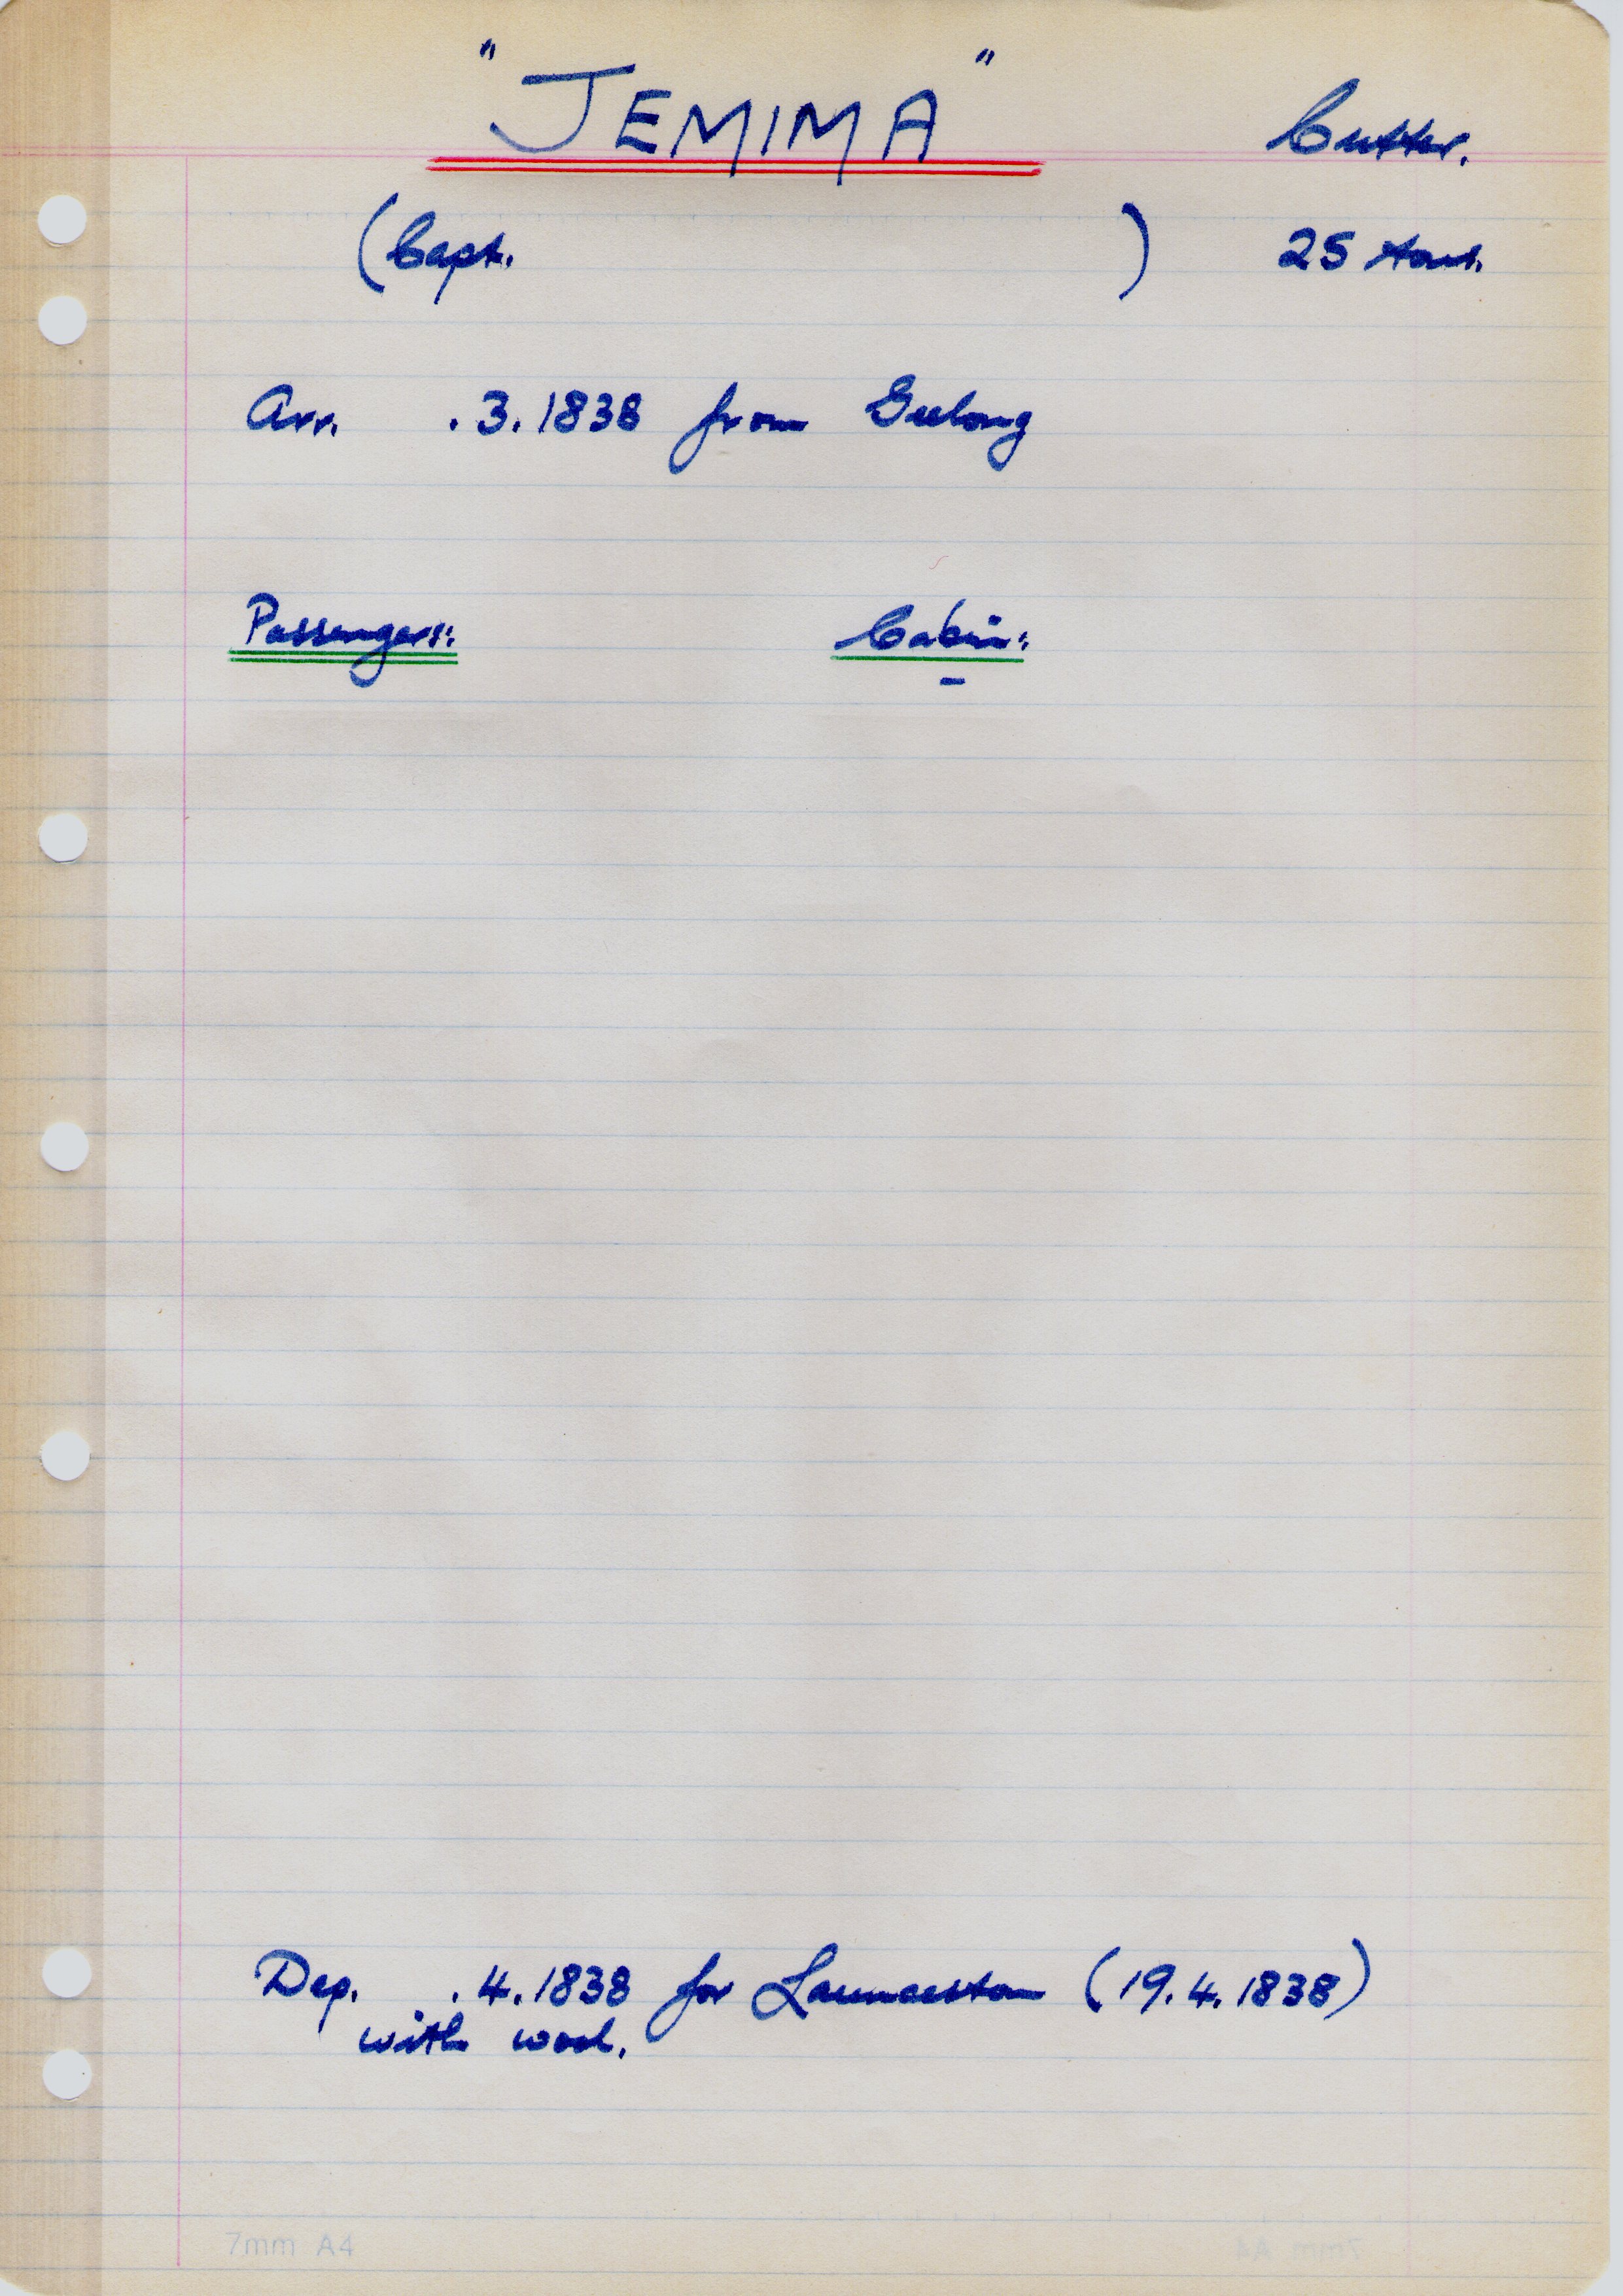 "JEMIMA" Cutter.
(Capt. ) 25 tons.
Arr. .3.1838 from Geelong
Passengers: Cabin:
-
Dep. .4.1838 for Launceston (19.4.1838)
with wool.
7mm A4